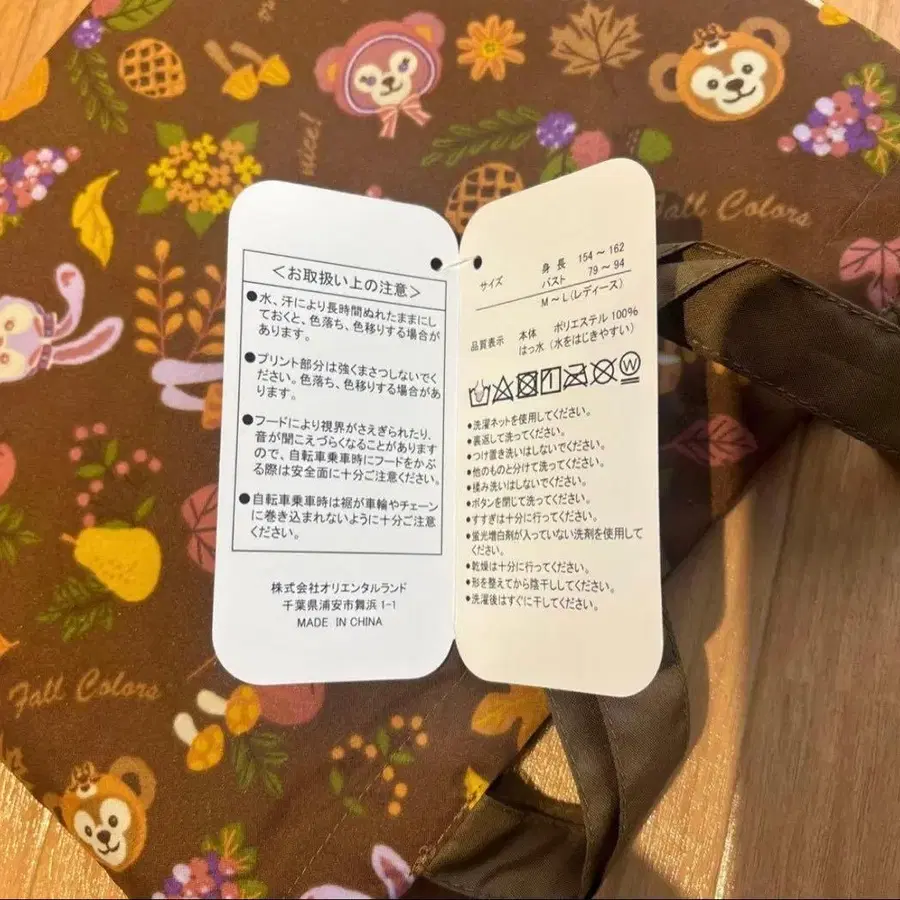 nice!
Fall Colors
<お取扱い上の注意>
●水、汗により長時間ぬれたままにし
ておくと、色落ち、色移りする場合が
あります。
●プリント部分は強くまさつしないでく
ださい。色落ち、色移りする場合があ
ります。
●フードにより視界がさえぎられたり、
音が聞こえづらくなることがあります
ので、自転車乗車時にフードをかぶ
る際は安全面に十分ご注意ください。
●自転車乗車時は裾が車輪やチェーン
に巻き込まれないように十分ご注意
ください。
株式会社オリエンタルランド
千葉県浦安市舞浜 1-1
MADE IN CHINA
サイズ 身長 154～162
バスト 79～94
M～L(レディース)
品質表示 本体 ポリエステル 100%
はっ水 (水をはじきやすい)
W
●洗濯ネットを使用してください。
●裏返して洗ってください。
●つけ置き洗いはしないでください。
●他のものと分けて洗ってください。
●揉み洗いはしないでください。
●ボタンを閉じて洗ってください。
●すすぎは十分に行ってください。
●蛍光増白剤が入っていない洗剤を使用して
ください。
●乾燥は十分に行ってください。
●形を整えてから陰干ししてください。
●洗濯後はすぐに干してください。
Fall Colors